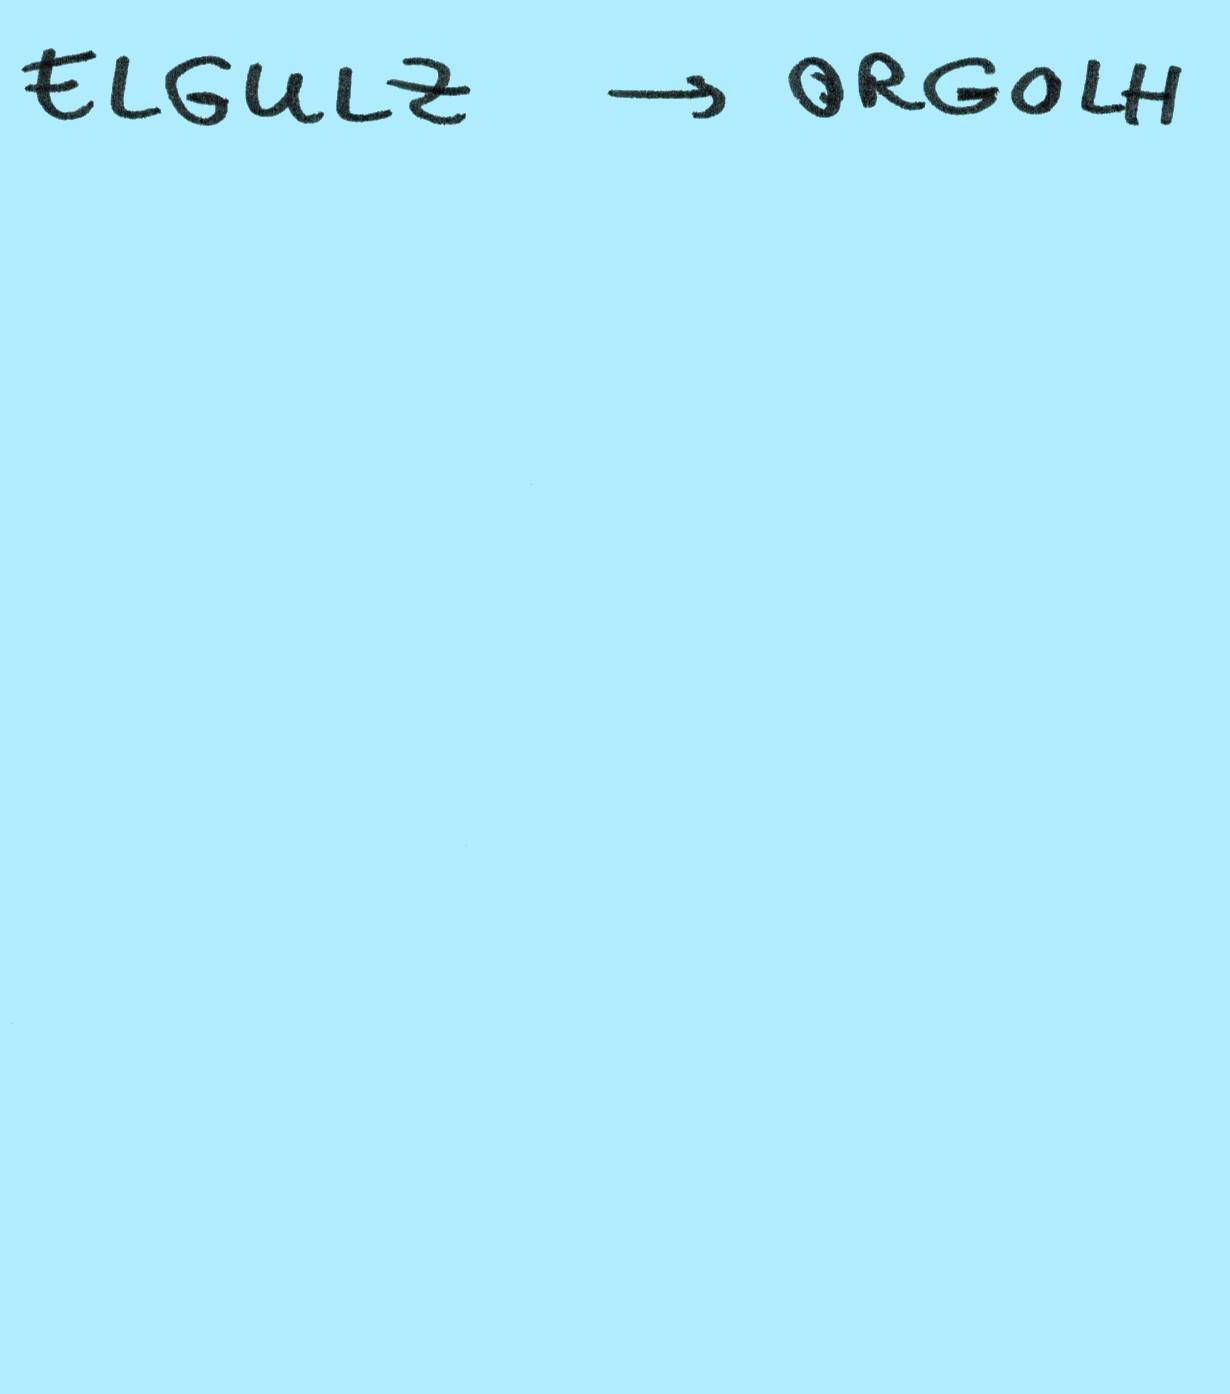 ELGULZ → ORGOLH